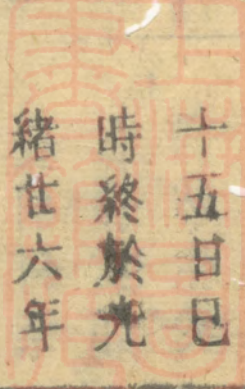 十五日巳
時終於光
緒廿六年